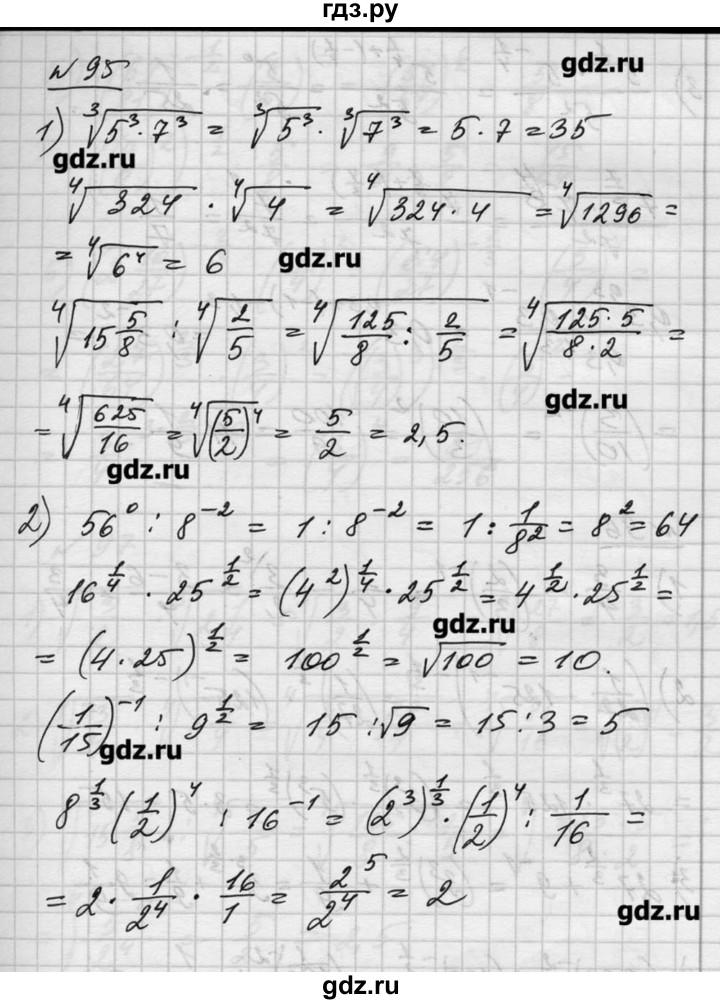 гдз.ру
№ 95
gdz.ru
1) ∛(5³·7³) = ∛(5³) · ∛(7³) = 5·7 = 35
gdz.ru
⁴√324 · ⁴√4 = ⁴√(324·4) = ⁴√1296 =
= ⁴√(6⁴) = 6
gdz.ru
⁴√(15 5/8) : ⁴√(2/5) = ⁴√(125/8 : 2/5) = ⁴√((125·5)/(8·2)) =
gdz.ru
= ⁴√(625/16) = ⁴√((5/2)⁴) = 5/2 = 2,5.
gdz.ru
2) 56⁰ : 8⁻² = 1 : 8⁻² = 1 : 1/8² = 8² = 64
16^(1/4) · 25^(1/2) = (4²)^(1/4) · 25^(1/2) = 4^(1/2) · 25^(1/2) =
gdz.ru
= (4·25)^(1/2) = 100^(1/2) = √100 = 10.
(1/15)⁻¹ : 9^(1/2) = 15 : √9 = 15 : 3 = 5
gdz.ru
8^(1/3) (1/2)⁴ : 16⁻¹ = (2³)^(1/3) · (1/2)⁴ : 1/16 =
= 2 · 1/2⁴ · 16/1 = 2⁵/2⁴ = 2
gdz.ru
gdz.ru